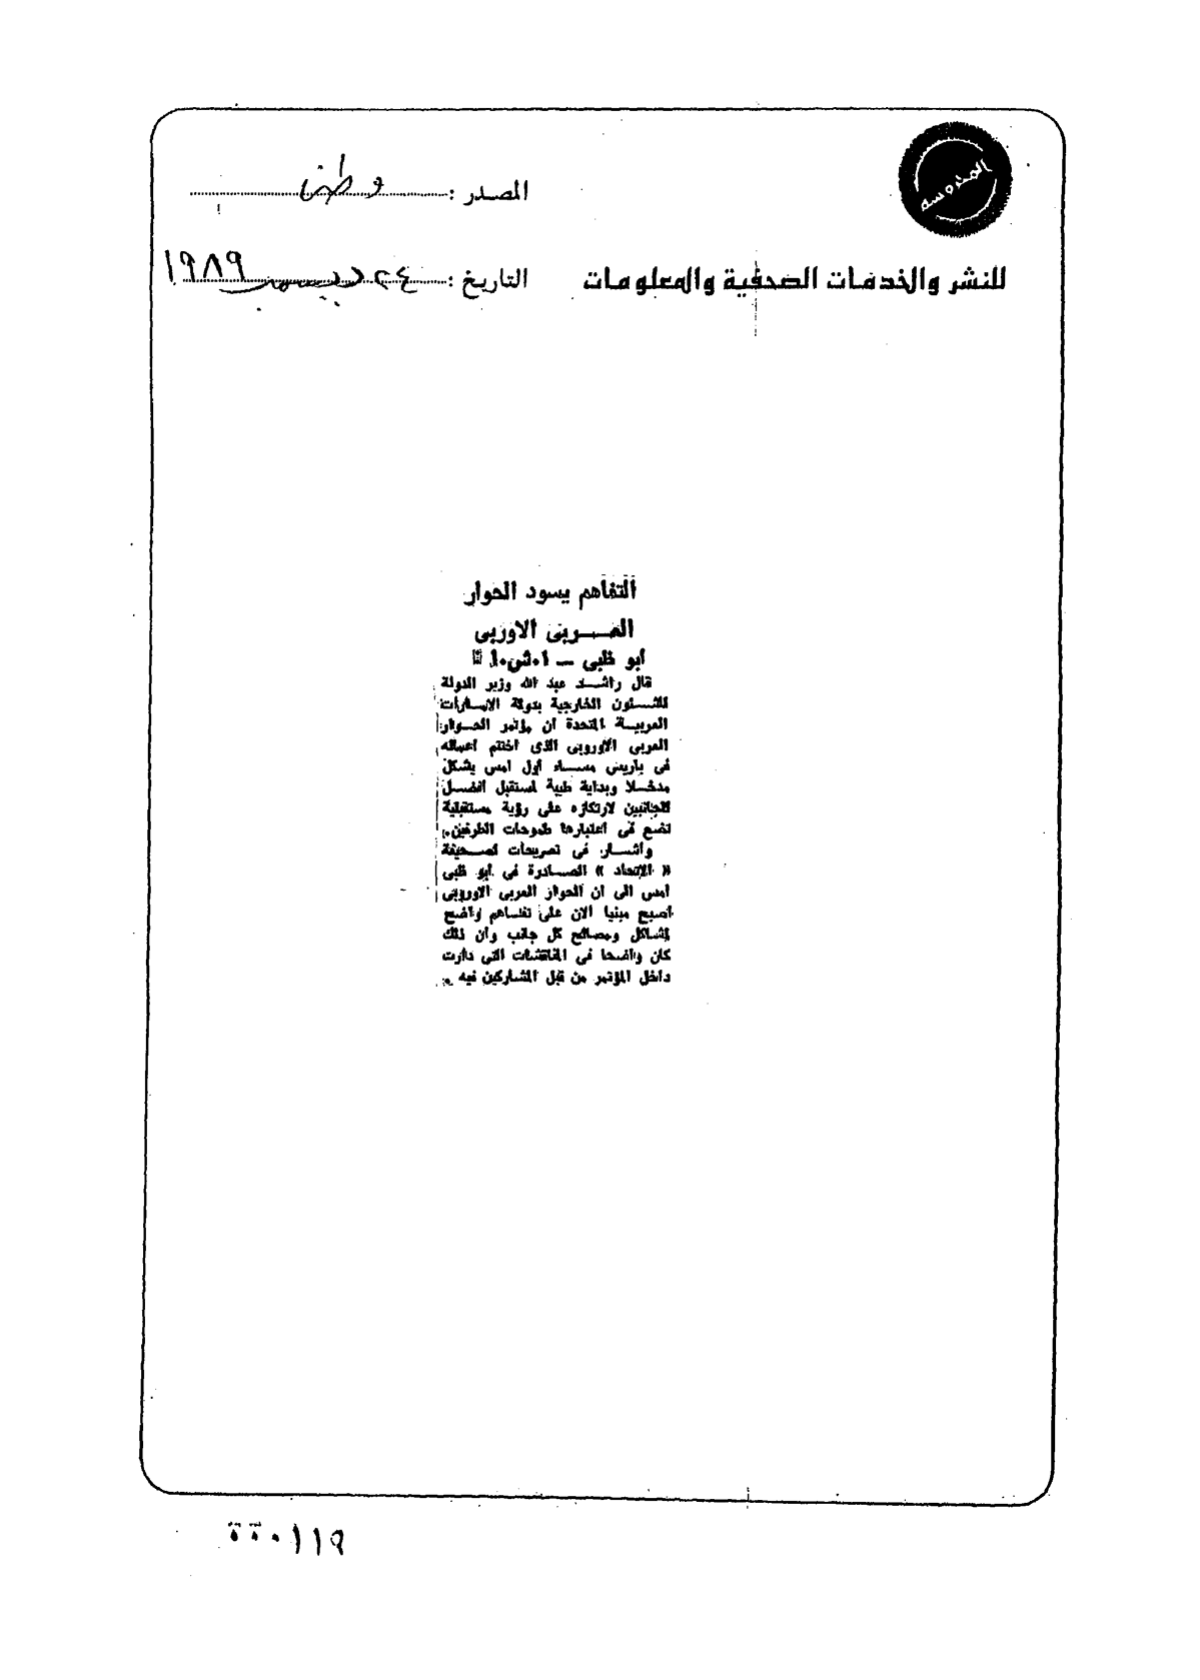 المصدر : وطنى
التاريخ : ٢٤ ديسمبر ١٩٨٩
للنشر والخدمات الصحفية والمعلومات
التفاهم يسود الحوار
العـــربى الاوربى
أبو ظبى — ا٠ش٠ا
قال راشـــد عبد الله وزير الدولة
للشـــئون الخارجية بدولة الامـــارات
العربيـــة المتحدة ان مؤتمر الحـــوار
العربى الاوروبى الذى اختتم اعماله
فى باريس مســـاء أول امس يشكل
مدخـــلا وبداية طيبة لمستقبل أفضـــل
للجانبين لارتكازه على رؤية مستقبلية
تضع فى اعتبارها طموحات الطرفين.
وأشـــار فى تصريحات لصـــحيفة
« الاتحاد » الصـــادرة فى أبو ظبى
امس الى ان الحوار العربى الاوروبى
أصبح مبنيا الان على تفـــاهم واضح
لمشاكل ومصالح كل جانب وأن ذلك
كان واضحا فى المناقشات التى دارت
داخل المؤتمر من قبل المشاركين فيه .